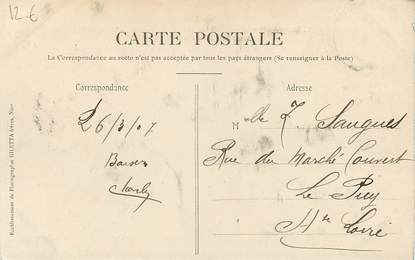 12 €
CARTE POSTALE
La Correspondance au recto n'est pas acceptée par tous les pays étrangers (Se renseigner à la Poste)
Correspondance
26/3/07
Adresse
Mlle Saugues
Rue du Marché Couvert
Le Puy
Hte Loire
GILETTA frères, Nice